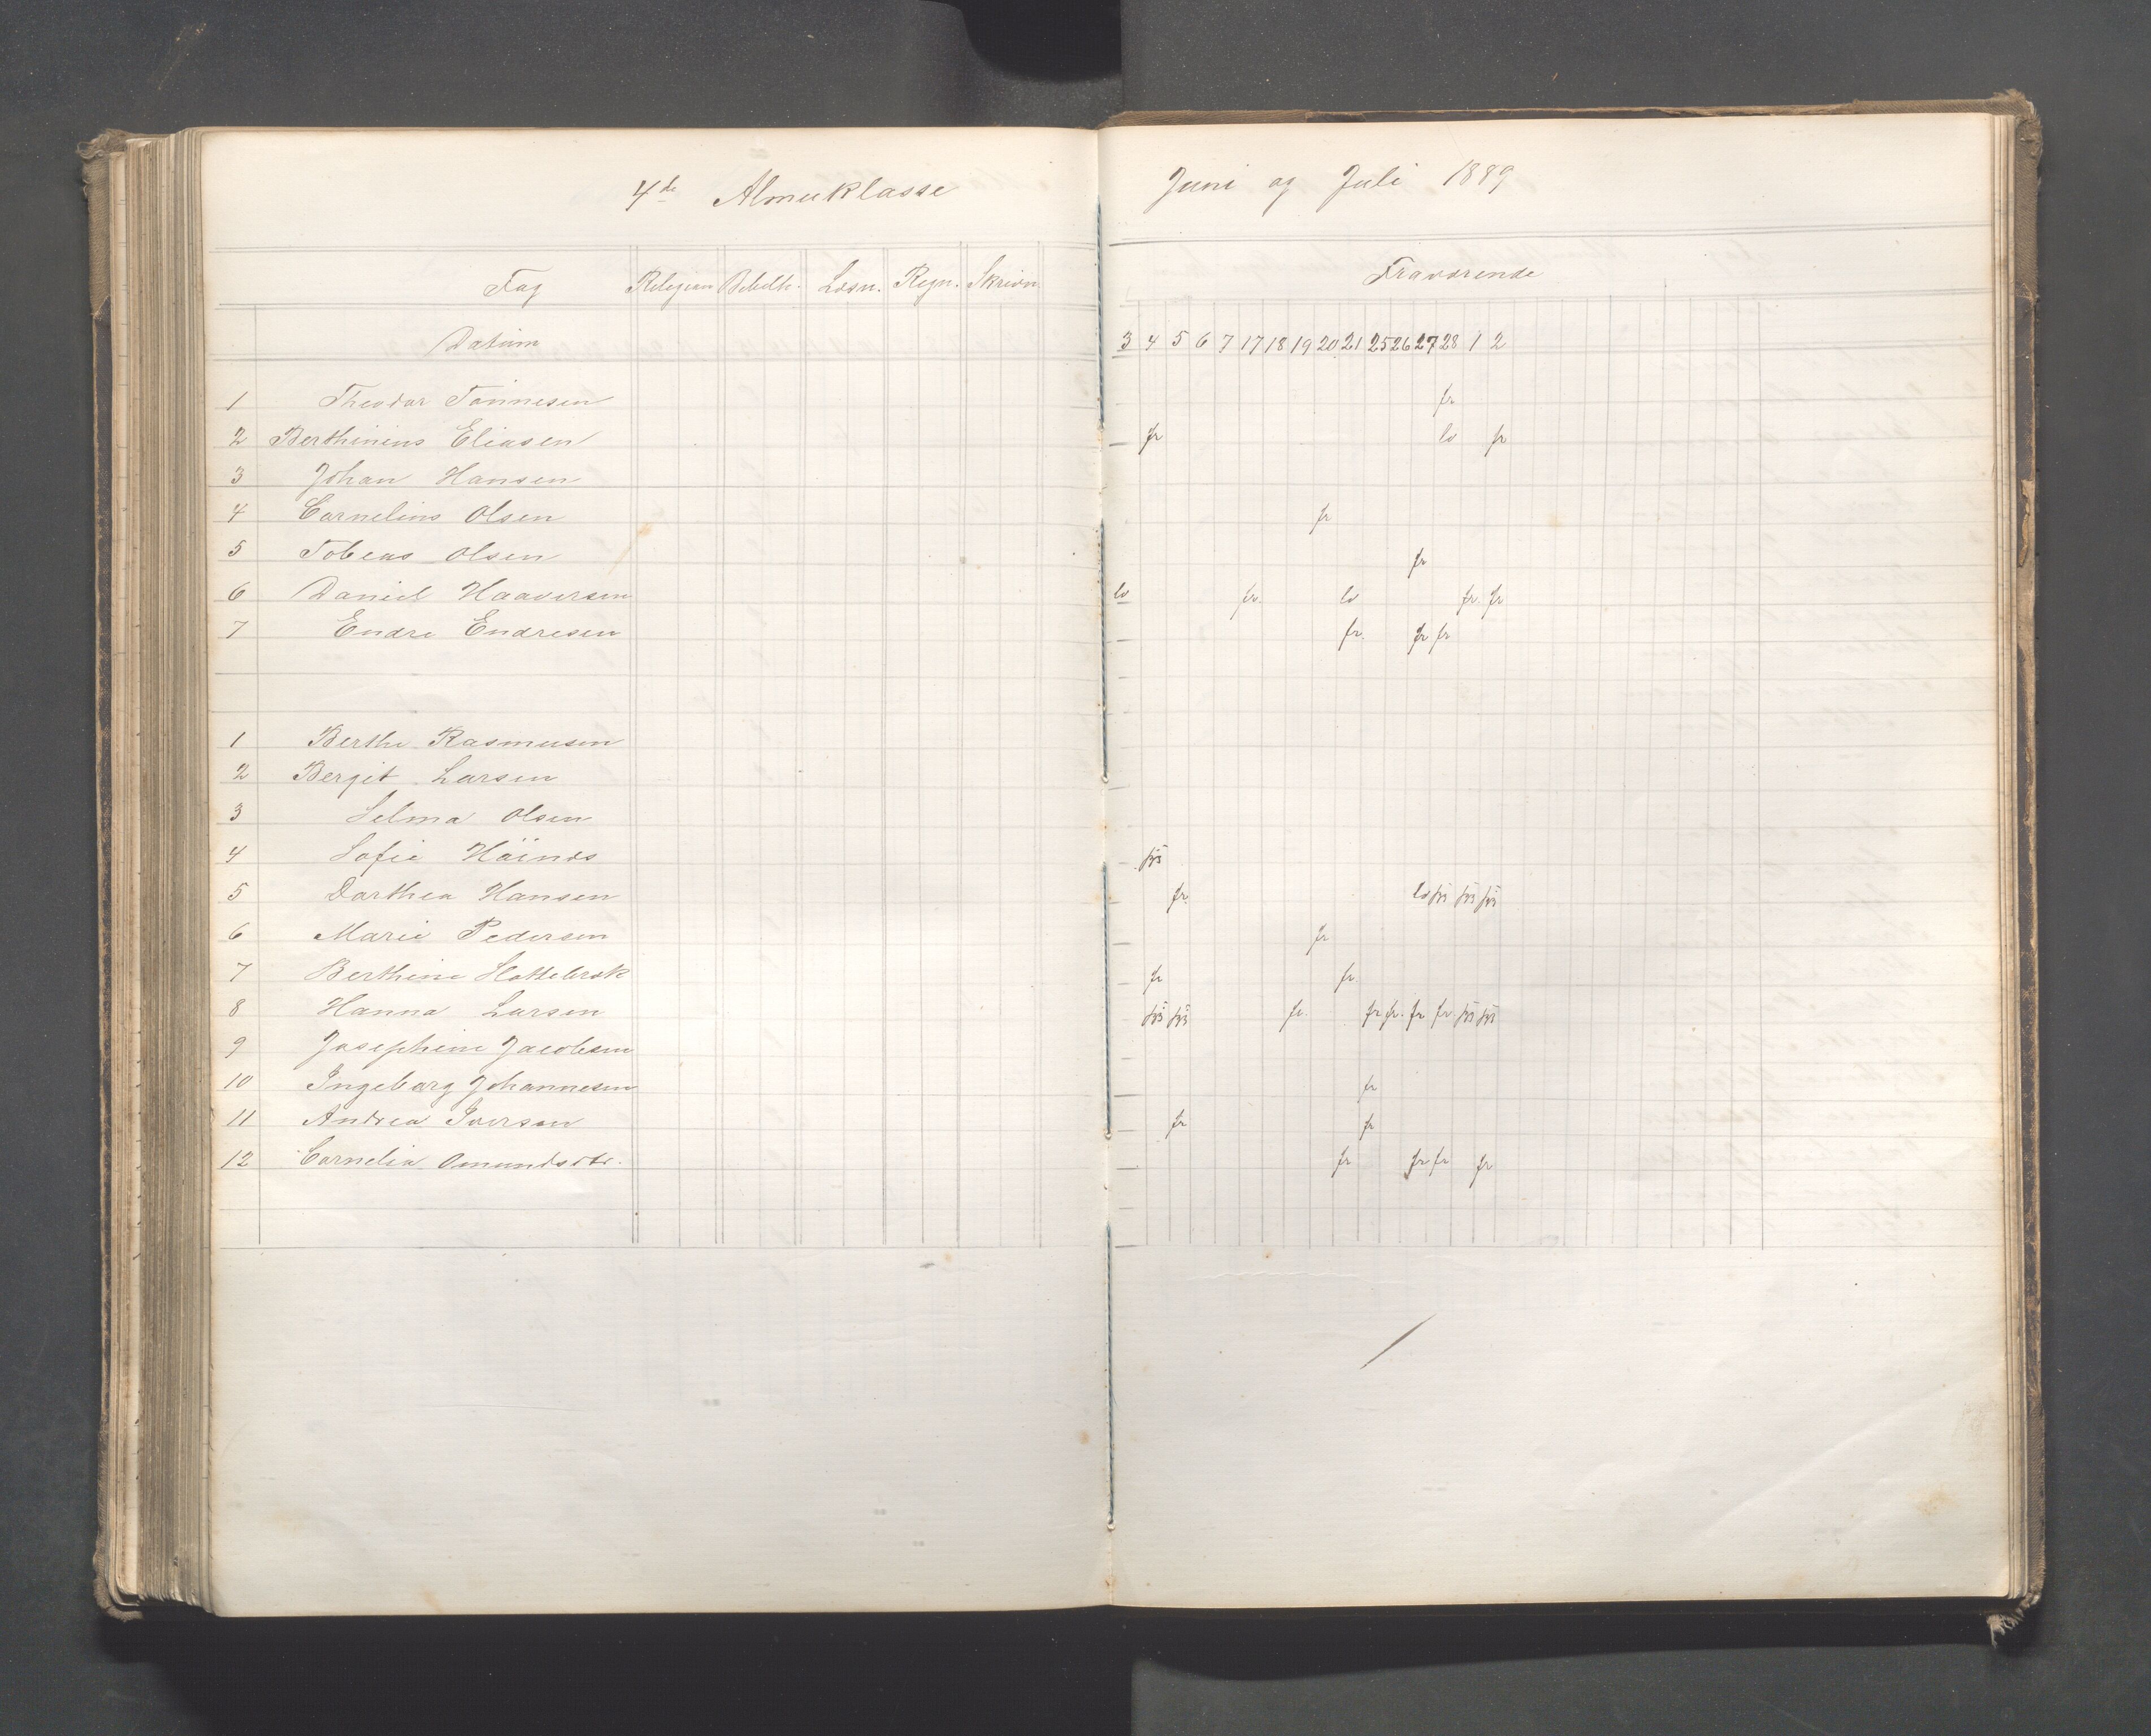 4de Almuklasse
Juni og Juli 1889
Fag Religion Bibelh. Læsn. Regn. Skrivn.
Fraværende
Datum
3 4 5 6 7 17 18 19 20 21 25 26 27 28 1 2
1 Theodor Tønnesen fr
2 Berthinius Eliasen fr lo fr
3 Johan Hansen
4 Cornelius Olsen fr
5 Tobias Olsen fr
6 Daniel Haaversen lo fr. lo fr. fr
7 Endre Endresen fr. fr fr
1 Berthe Rasmusen
2 Bergit Larsen
3 Selma Olsen
4 Sofie
5 Dorthea Hansen fr. lo
6 Marie Pedersen fr
7 Berthine fr fr.
8 Hanna Larsen fr. fr fr. fr fr.
9 Josephine Jacobsen
10 Ingeborg Johannesen fr
11 Andrea Iversen fr fr
12 Cornelia Omundsdtr. fr fr fr fr